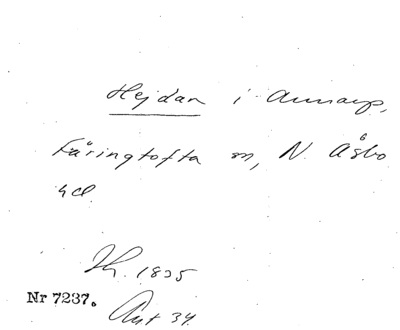 Hejdan i Annarp,
Färingtofta sn, N. Åsbo
hd.
Th. 1835
Nr 7237.
Ant 34.